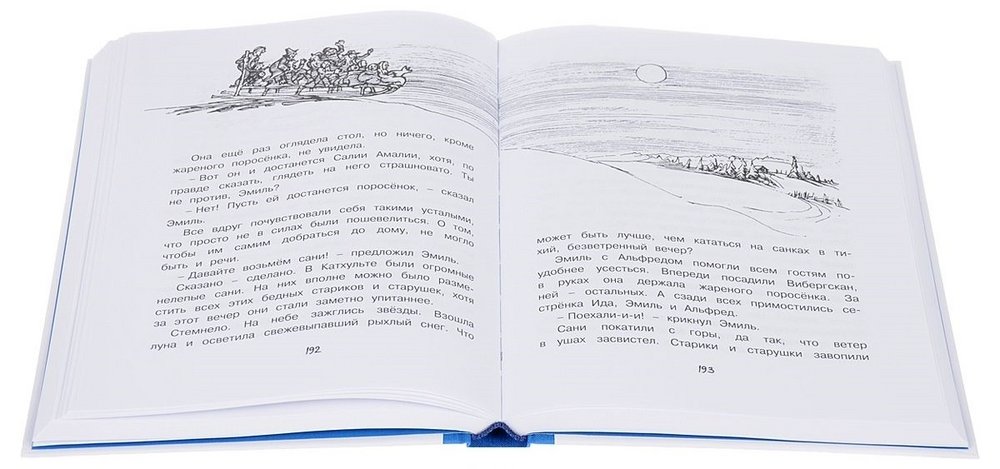 Она ещё раз оглядела стол, но ничего, кроме
жареного поросёнка, не увидела.
– Вот он и достанется Салии Амалии, хотя, по
правде сказать, глядеть на него страшновато. Ты
не против, Эмиль?
– Нет! Пусть ей достанется поросёнок, – сказал
Эмиль.
Все вдруг почувствовали себя такими усталыми,
что просто не в силах были пошевелиться. О том,
чтобы им самим добраться до дому, не могло
быть и речи.
– Давайте возьмём сани! – предложил Эмиль.
Сказано – сделано. В Катхульте были огромные
нелепые сани. На них вполне можно было разме-
стить всех этих бедных стариков и старушек, хотя
за этот вечер они стали заметно упитаннее.
Стемнело. На небе зажглись звёзды. Взошла
луна и осветила свежевыпавший рыхлый снег. Что
192
может быть лучше, чем кататься на санках в ти-
хий, безветренный вечер?
Эмиль с Альфредом помогли всем гостям по-
удобнее усесться. Впереди посадили Вибергскан,
в руках она держала жареного поросёнка. За
ней – остальных. А сзади всех примостились се-
стрёнка Ида, Эмиль и Альфред.
– Поехали-и-и! – крикнул Эмиль.
Сани покатили с горы, да так, что ветер
в ушах засвистел. Старики и старушки завопили
193